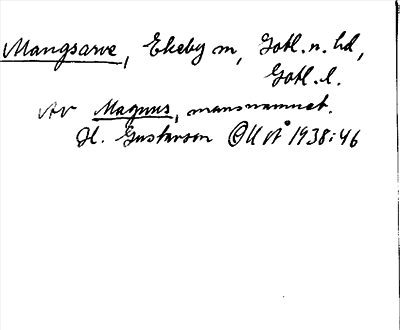 Mangsarve, Ekeby sn, Gotl. n. hd,
Gotl. l.
Av Magnus, mansnamnet.
H. Gustavson OUÅ 1938:46